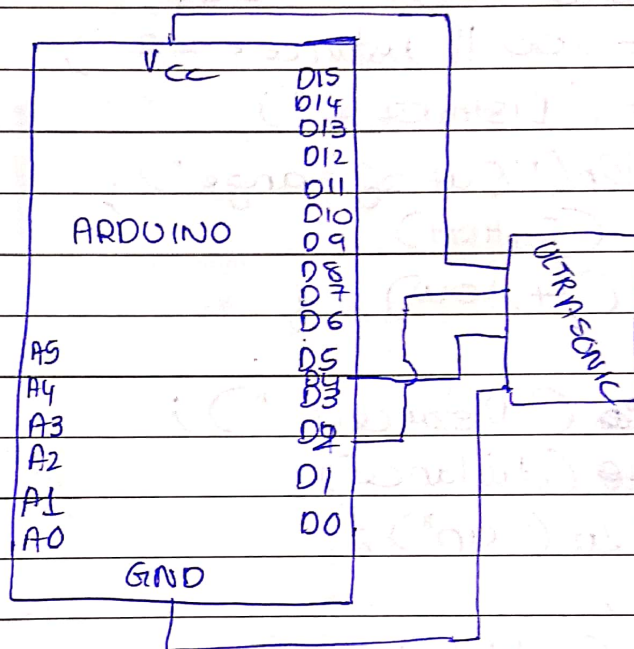 VCC
D15
D14
D13
D12
D11
D10
ARDUINO
D9
D8
D7
D6
D5
D4
D3
D2
D1
D0
A5
A4
A3
A2
A1
A0
GND
ULTRASONIC